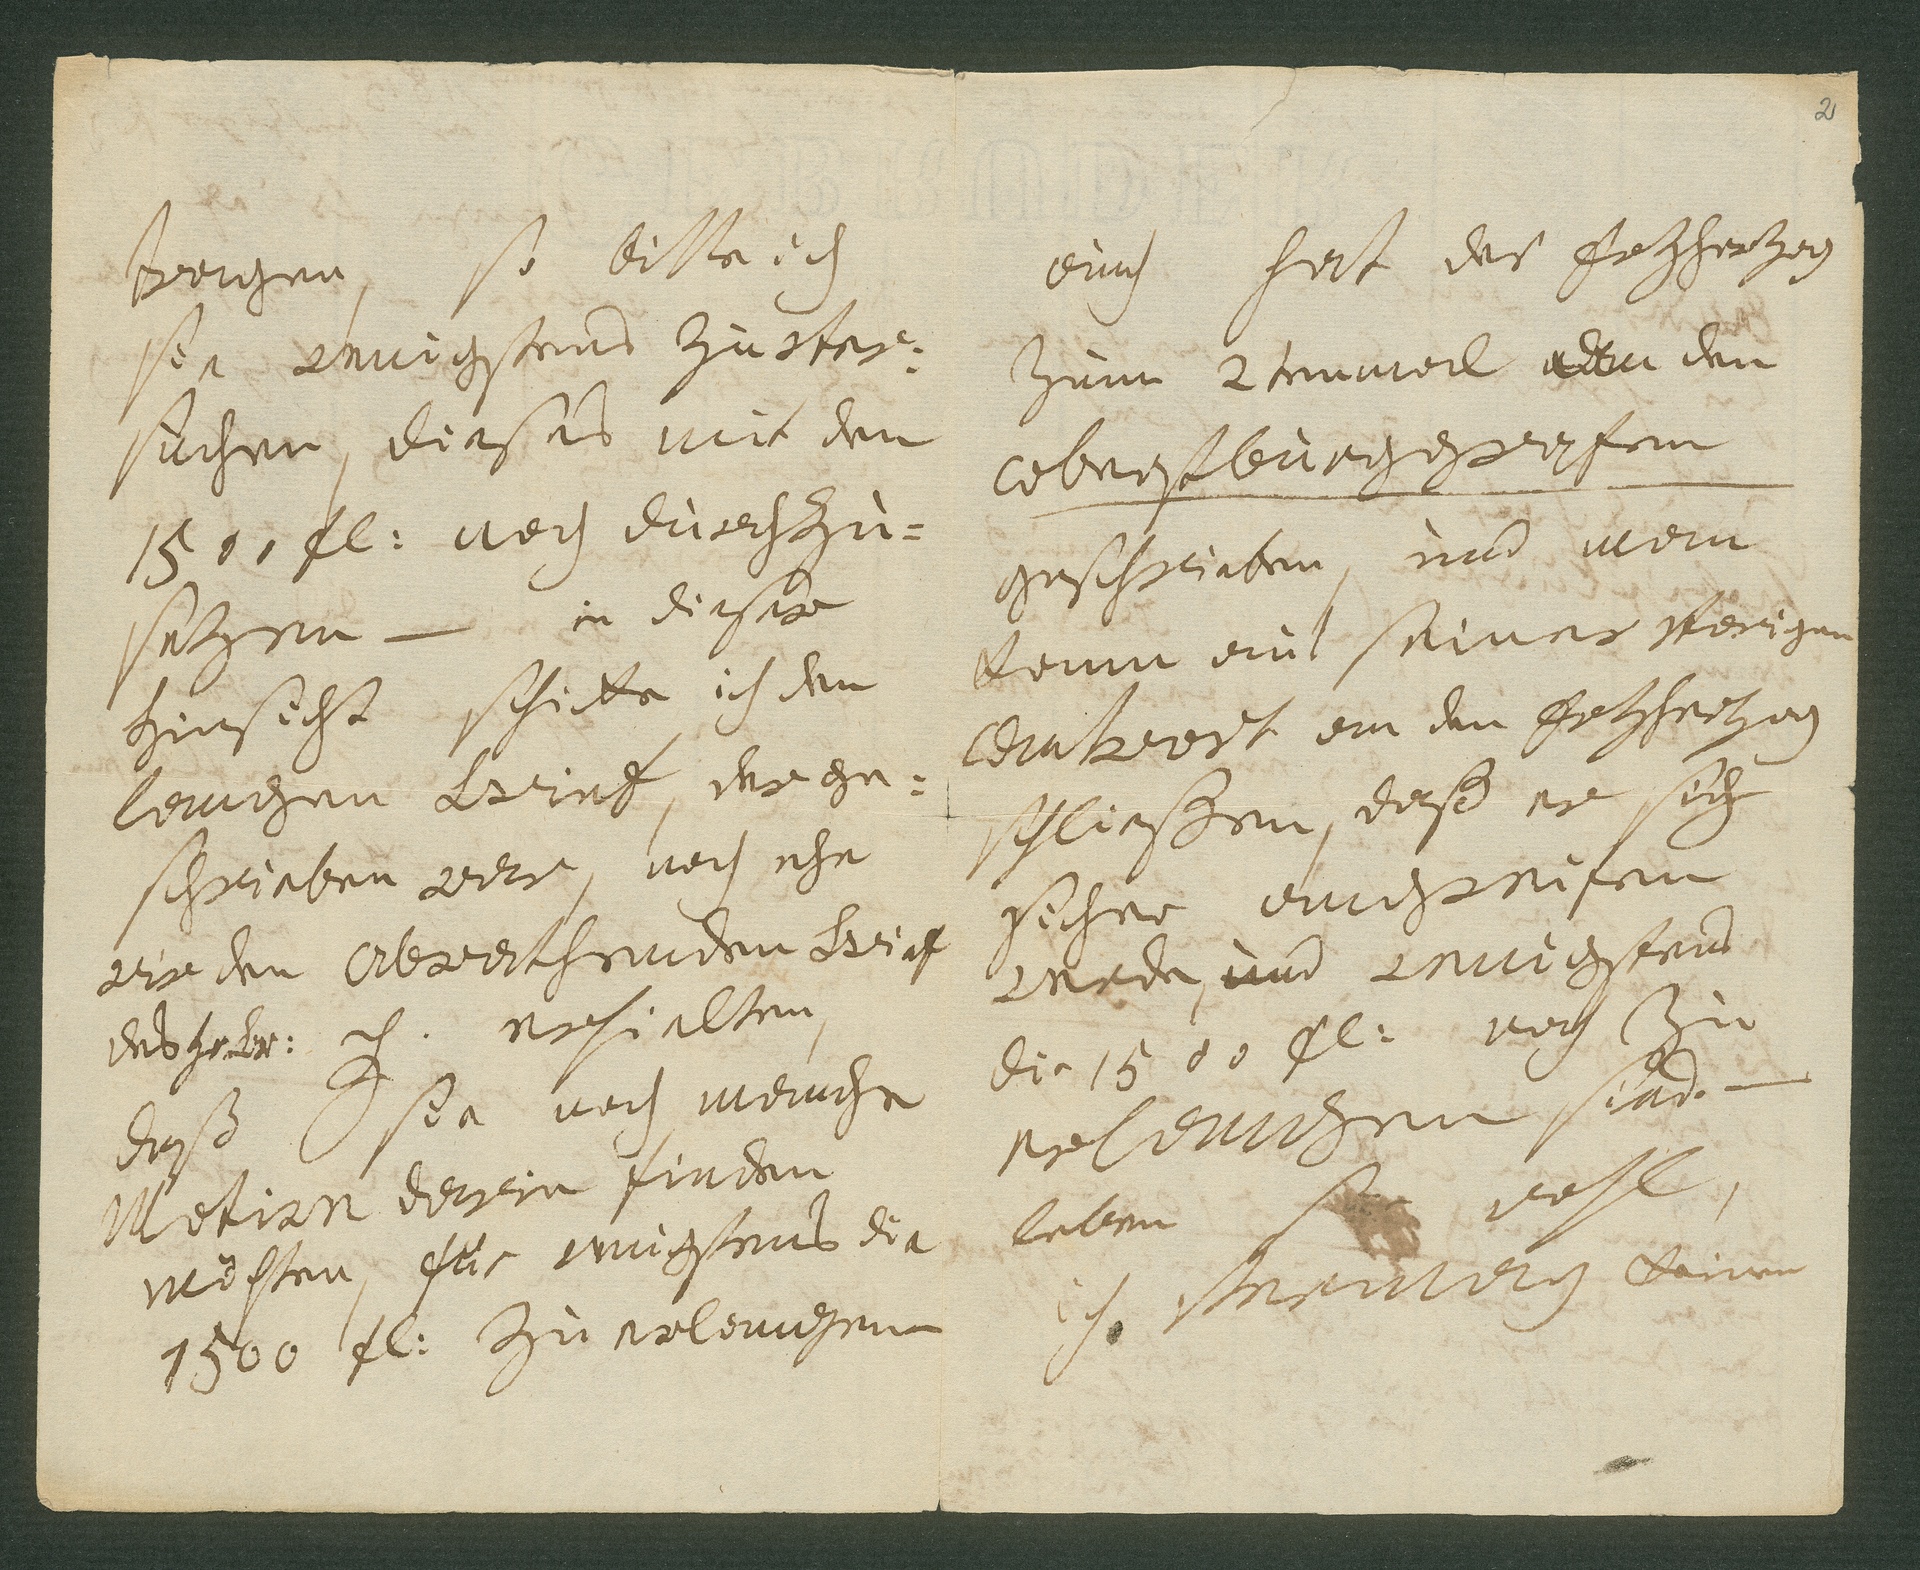 tragen, so bitte ich
sie wenigstens zu ver:
suchen, dieses mit den
1500 fl: noch durchzu=
setzen — in dieser
hinsicht schickte ich den
langen Brief, der ge:
schrieben war, noch ehe
wir den Abrathenden Brief
erhielten,
daß sie noch manche
Motive darin finden
möchten, für wenigstens die
1500 fl: zu erlangen
2
auch hat der Erzherzog
zum 2tenmal den
Oberstburggrafen
geschrieben, und man
kann aus seiner vorigen
Antwort an den Erzherzog
schließen, daß er sich
sicher angreifen
werde, und wenigstens
die 1500 fl: noch zu
erlangen sind. —
leben sie wohl,
ich vermag keinen